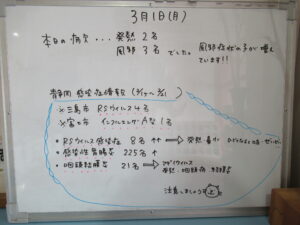 3月1日(月)
本日の病欠... 発熱 2名
風邪 3名 でした。 風邪症状の子が増え
ています!!
静岡 感染症情報
※三島市 RSウイルス 4名
※富士市 インフルエンザA型 1名
・RSウイルス感染症 8名 ↑↑ ⇒ 発熱・鼻汁
・感染性胃腸炎 225名 ↑
・咽頭結膜炎 21名 ↑ ⇒ アデノウイルス
発熱・咽頭痛・結膜炎
注意しましょう